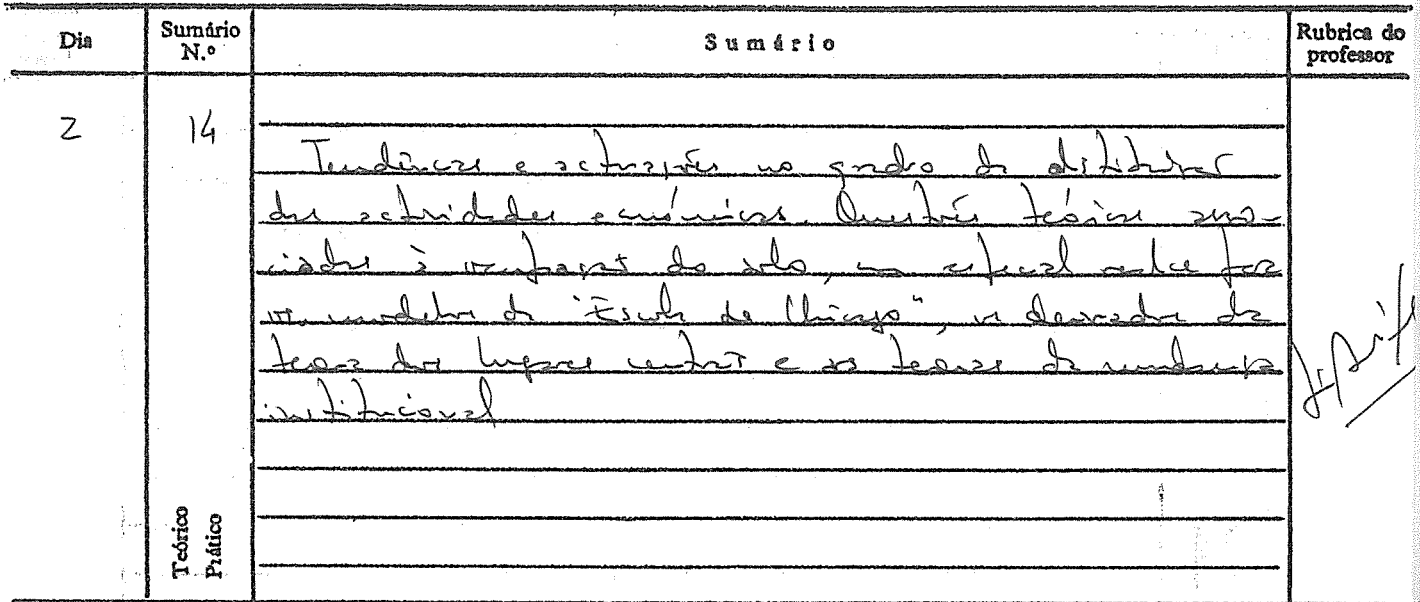 Dia
Sumário N.º
Sumário
Rubrica do professor
2
14
Tendências e actuações no da
das actividades económicas. Questões teóricas asso-
ciadas à ocupação do solo, em especial
os modelos da "Escola de Chicago", os derivados da
teoria dos lugares centrais e as teorias da mudança
institucional
Teórico
Prático